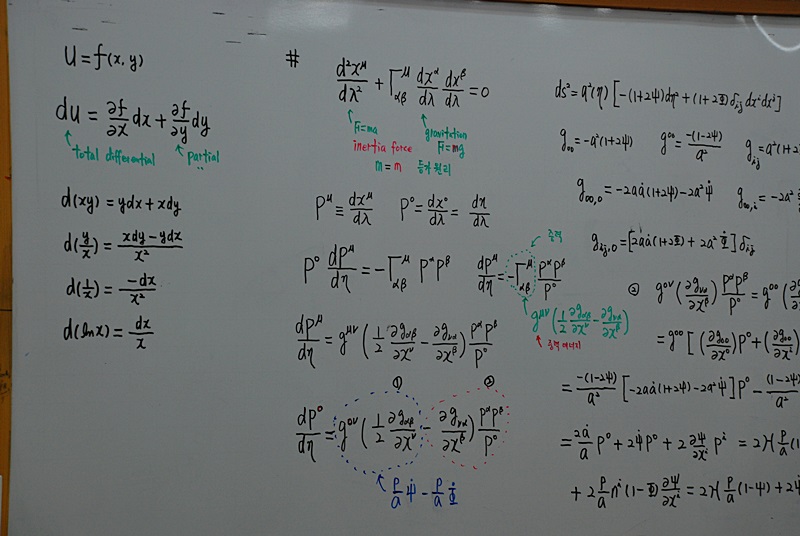 U = f(x, y)
du = ∂f/∂x dx + ∂f/∂y dy
total differential partial
d(xy) = ydx + xdy
d(y/x) = (xdy − ydx)/x²
d(1/x) = −dx/x²
d(lnx) = dx/x
#
d²x^μ/dλ² + Γ^μ_αβ dx^α/dλ dx^β/dλ = 0
F=ma gravitation
inertia force F=mg
m = m 등가원리
P^μ ≡ dx^μ/dλ P⁰ = dx⁰/dλ = dη/dλ
중력
P⁰ dP^μ/dη = −Γ^μ_αβ P^α P^β dP^μ/dη = −Γ^μ_αβ P^αP^β/P⁰
g^μν (1/2 ∂g_αβ/∂x^ν − ∂g_να/∂x^β)
중력 에너지
dP^μ/dη = g^μν (1/2 ∂g_αβ/∂x^ν − ∂g_να/∂x^β) P^αP^β/P⁰
① ②
dP⁰/dη = g^0ν (1/2 ∂g_αβ/∂x^ν − ∂g_να/∂x^β) P^αP^β/P⁰
P/a ψ̇ − P/a Φ̇
ds² = a²(η) [−(1+2ψ)dη² + (1+2Φ)δ_ij dx^i dx^j]
g_00 = −a²(1+2ψ) g^00 = −(1−2ψ)/a² g_ij = a²(1+2
g_00,0 = −2aȧ(1+2ψ) − 2a²ψ̇ g_00,i = −2a²
g_ij,0 = [2aȧ(1+2Φ) + 2a²Φ̇] δ_ij
② g^0ν (∂g_να/∂x^β) P^αP^β/P⁰ = g^00 (
= g^00 [(∂g_00/∂x⁰)P⁰ + (∂g_00/∂x^i)
= −(1−2ψ)/a² [−2aȧ(1+2ψ) − 2a²ψ̇] P⁰ − (1−2ψ)/a²
= 2ȧ/a P⁰ + 2ψ̇P⁰ + 2 ∂ψ/∂x^i P^i = 2H P/a (1
+ 2 P/a n^i (1−Φ) ∂ψ/∂x^i = 2H P/a (1−ψ) + 2